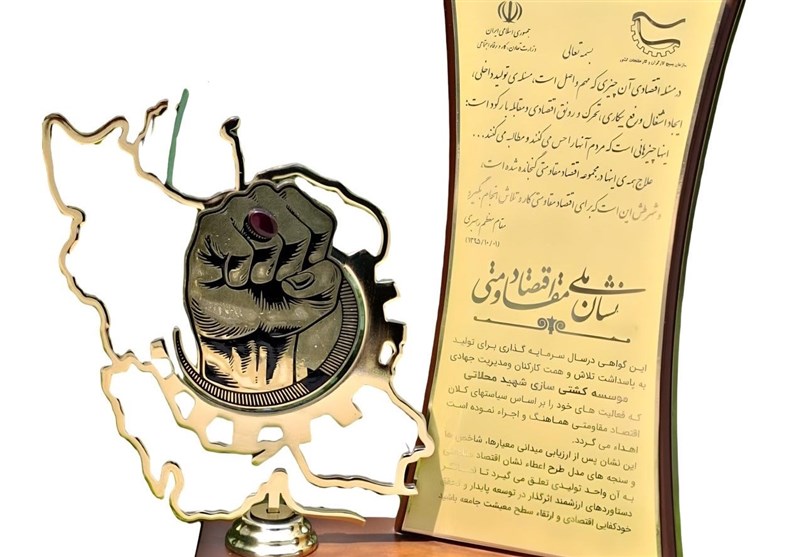 جمهوری اسلامی ایران
وزارت تعاون، کار و رفاه اجتماعی
سازمان بسیج کارگران و کارخانجات کشور
بسمه تعالی
در مسئله اقتصادی آن چیزی که مهم و اصل است، مسئله‌ی تولید داخلی،
ایجاد اشتغال و رفع بیکاری، تحرک و رونق اقتصادی و مقابله با رکود است؛
اینها چیزهائی است که مردم آنها را حس می‌کنند و مطالبه می‌کنند...
علاج همه‌ی اینها در مجموعه اقتصاد مقاومتی گنجانده شده است،
و شرطش این است که برای اقتصاد مقاومتی کار و تلاش انجام بگیرد
مقام معظم رهبری
نشان ملی اقتصاد مقاومتی
این گواهی درسال سرمایه گذاری برای تولید
به پاسداشت تلاش و همت کارکنان ومدیریت جهادی
موسسه کشتی سازی شهید محلاتی
که فعالیت های خود را بر اساس سیاستهای کلان
اقتصاد مقاومتی هماهنگ و اجراء نموده است
اهداء می گردد.
این نشان پس از ارزیابی میدانی معیارها، شاخص ها
و سنجه های مدل طرح اعطاء نشان اقتصاد
به آن واحد تولیدی تعلق می گیرد تا
دستاوردهای ارزشمند اثرگذار در توسعه پایدار و
خودکفایی اقتصادی و ارتقاء سطح معیشت جامعه باشد